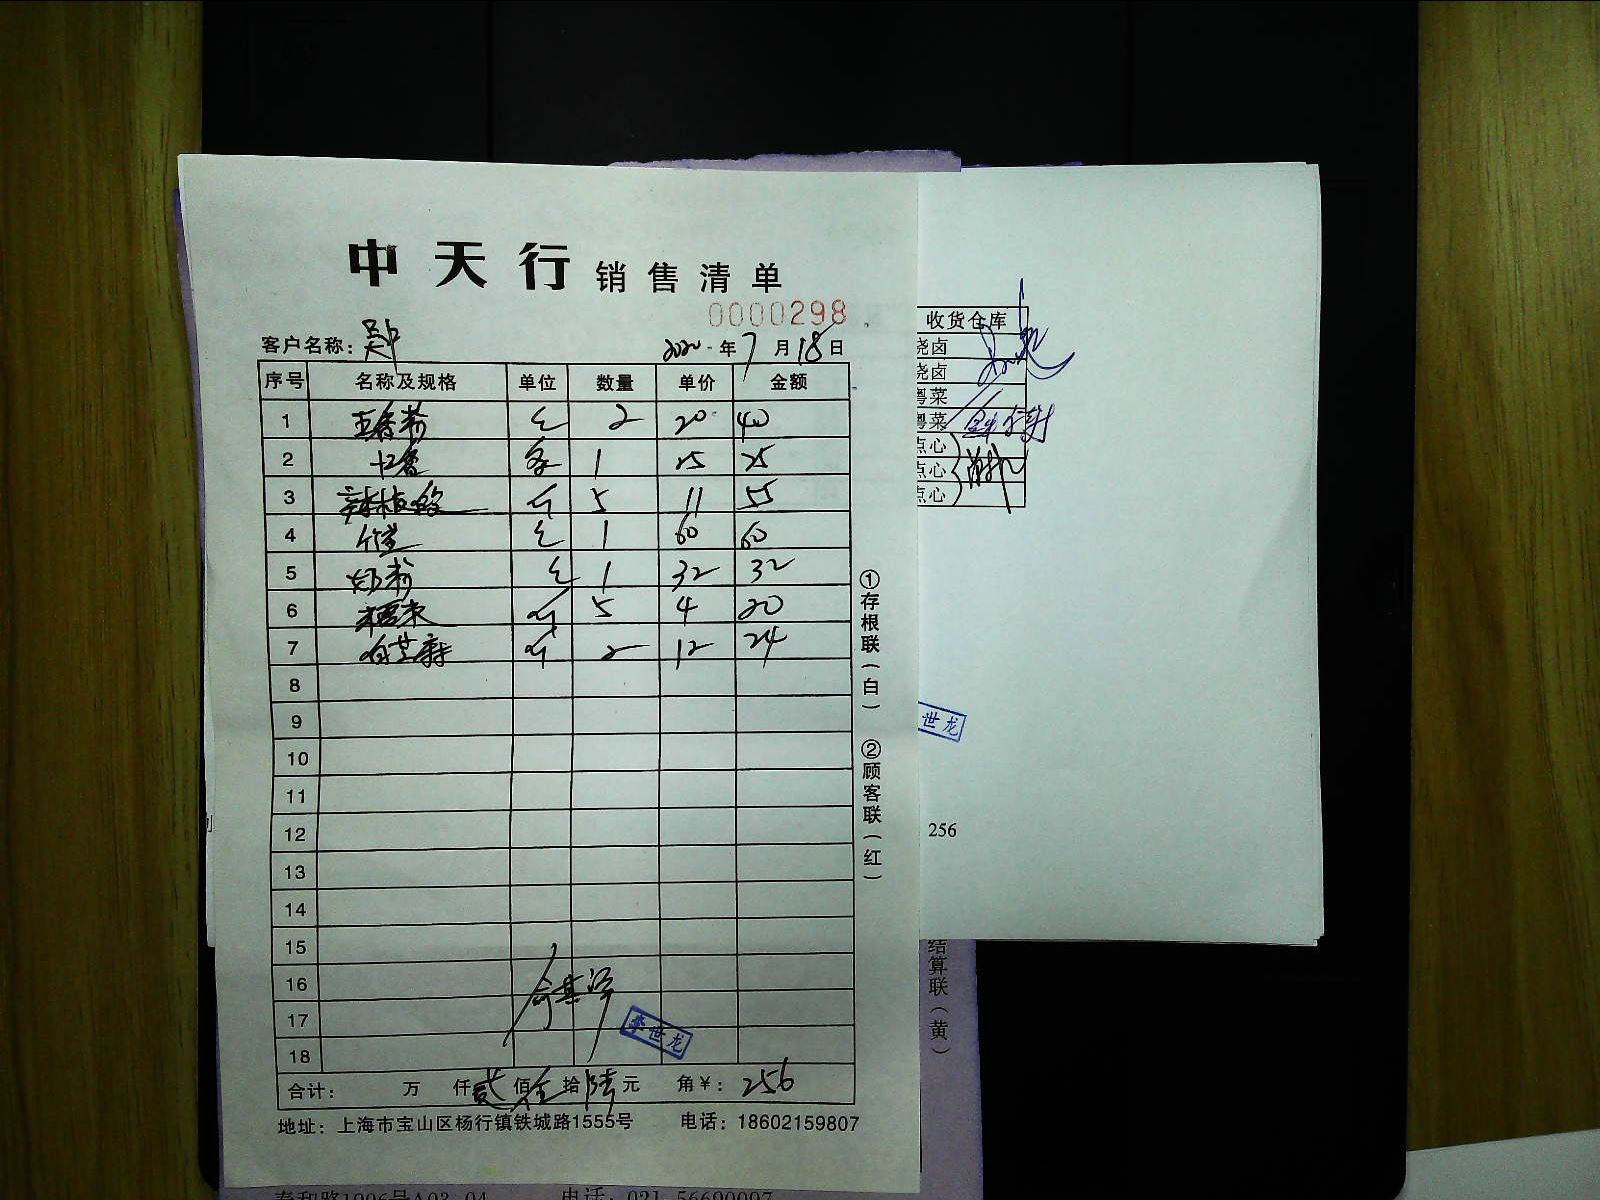 中天行 销售清单
0000298
客户名称： 2020年7月18日
序号 名称及规格 单位 数量 单价 金额
1 五香粉 2 20 40
2 十三香 1 25 25
3 辣椒 斤 5 11 55
4 1 60 60
5 奶粉 1 32 32
6 粟米 斤 5 4 20
7 白芝麻 斤 2 12 24
8
9
10
11
12
13
14
15
16
17
18
李世龙
合计： 万 仟贰佰伍拾陆元 角¥：256
地址：上海市宝山区杨行镇铁城路1555号 电话：18602159807
①存根联（白） ②顾客联（红）
收货仓库
烧卤
烧卤
粤菜
粤菜
点心
点心
点心
世龙
256
结算联（黄）